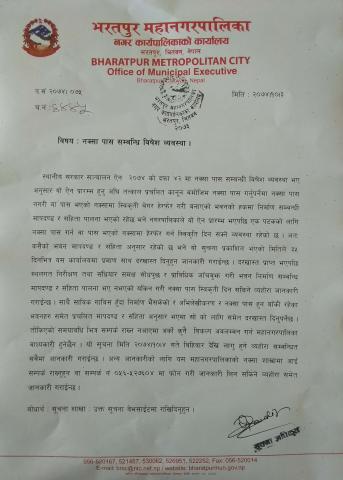 भरतपुर महानगरपालिका
नगर कार्यपालिकाको कार्यालय
भरतपुर, चितवन, नेपाल
BHARATPUR METROPOLITAN CITY
Office of Municipal Executive
Bharatpur, Nepal
प.सं २०७४।०७५
मिति : २०७४।७।३
च.नं :
विषय : नक्सा पास सम्बन्धि विषेश व्यवस्था ।
स्थानीय सरकार सञ्चालन ऐन २०७४ को दफा ४२ मा नक्सा पास सम्बन्धी विषेश व्यवस्था भए
अनुसार यो ऐन प्रारम्भ हुनु अघि तत्काल प्रचलित कानून बमोजिम नक्सा पास गर्नुपर्नेमा नक्सा पास
नगरी वा पास भएको नक्सामा स्विकृती बेगर हेरफेर गरी बनाएको भवनको हकमा निर्माण सम्बन्धि
मापदण्ड र संहिता पालना भएको रहेछ भने नगरपालिकाले यो ऐन प्रारम्भ भएपछि एक पटकको लागि
नक्सा पास गर्न वा पास भएको नक्सामा हेरफेर गर्न स्विकृति दिन सक्ने व्यवस्था रहेको छ । अतः
कसैको भवन मापदण्ड र संहिता अनुसार रहेको छ भने यो सूचना प्रकाशित भएको मितिले ३५
दिनभित्र यस कार्यालयमा प्रमाण साथ दरखास्त दिनुहुन जानकारी गराईन्छ । दरखास्त प्राप्त भएपछि
स्थलगत निरीक्षण तथा सँधियार समक्ष सोधपुछ र प्राविधिक जाँचबुझ गरी भवन निर्माण सम्बन्धि
मापदण्ड र संहिता पालना भए नभएको यकिन गरी नक्सा पास गर्न सकिने व्यहोरा जानकारी
गराईन्छ । साथै साविक गाविस हुँदा निर्माण भैसकेको र अभिलेखीकरण र नक्सा पास हुन बाँकी रहेका
भवनहरु समेत प्रचलित मापदण्ड र संहिता अनुसार भएमा सो को लागि समेत दरखास्त दिनुपर्नेछ ।
तोकिएको समयावधि भित्र सम्पर्क राख्न नआएमा अर्को कुनै विकल्प अवलम्बन गर्न महानगरपालिका
बाध्यकारी हुनेछैन । यो सूचना मिति २०७४।७।०४ गते बिहिवार देखि लागु हुने व्यहोरा सम्बन्धित
सबैमा जानकारी गराईन्छ । अन्य जानकारीको लागि यस महानगरपालिकाको नक्सा शाखामा आई
सम्पर्क राख्नुहुन वा सम्पर्क नं ०५६-५२७६०४ मा फोन गरी जानकारी लिन सकिने व्यहोरा समेत
जानकारी गराईन्छ ।
बोधार्थ : सूचना शाखा : उक्त सूचना वेभसाईटमा राखिदिनुहुन ।
सूचना अधिकृत
056-520167, 521467, 530062, 526951, 522252, Fax: 056-510014
E-mail: bmc@ntc.net.np / website: bharatpurmun.gov.np